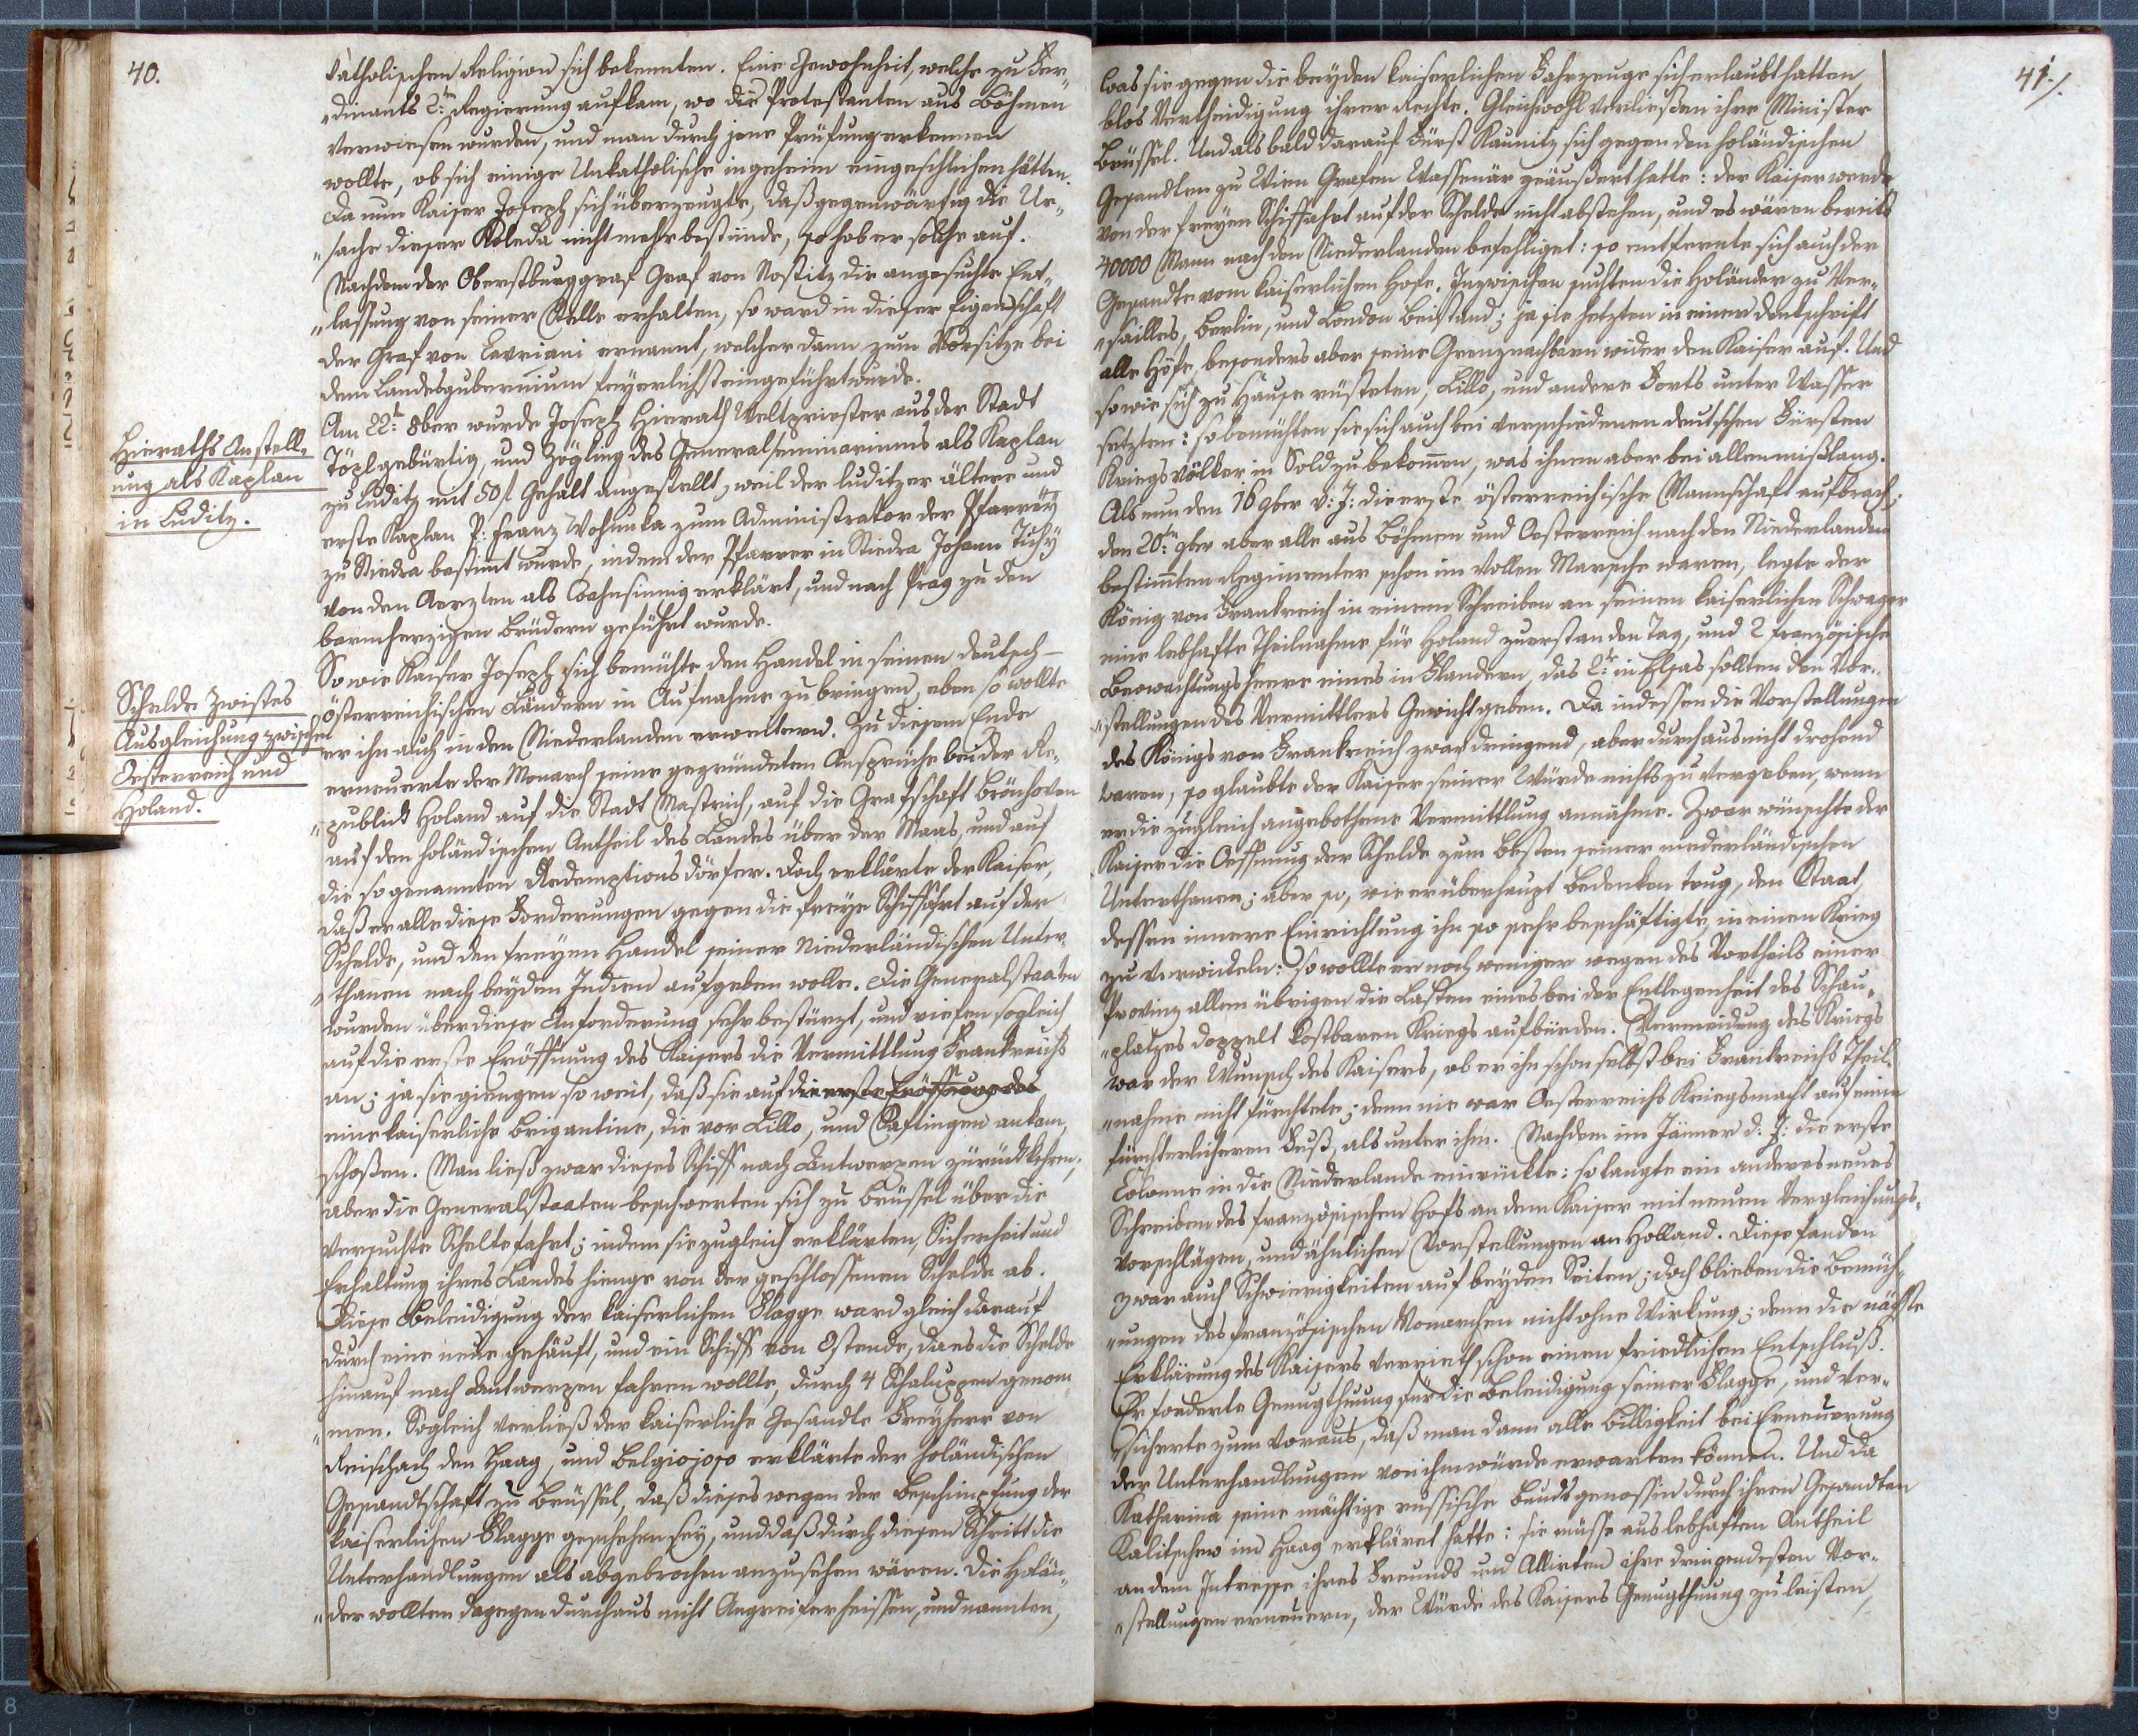 40.
Catholischen Religion sich bekennten. Eine Gewohnheit, welche zu Fer-
„dinants 2:ten Regierung aufkam, wo die Protestanten aus Böhmen
verwiesen wurden, und man durch jene Prüfung erkennen
wollte, ob sich einige Unkatholische ingeheim eingeschlichen hätten.
Da nun Kaiser Joseph sich überzeugte, daß gegenwärtig die Ur-
„sache dieser Koleda nicht mehr bestünde, so hob er solche auf.
Nachdem der Oberstburggraf Graf von Nostitz die angesuchte Ent-
„lassung von seiner Stelle erhalten, so ward in dieser Eigenschaft
der Graf von Cavriani ernannt, welcher dann zum Vorsitze bei
dem Landesgubernium feyerlichst eingeführt wurde.
Hieraths Anstell-
ung als Kaplan
in Luditz.
Am 22:te 8ber wurde Joseph Hierath Weltpriester aus der Stadt
Töpl gebürtig, und Zögling des Generalseminariums als Kaplan
zu Luditz mit 50 fl Gehalt angestellt, weil der luditzer ältere und
erste Kaplan P: Franz Wohnuka zum Administrator der Pfarrey
zu Stiedra bestimt wurde, indem der Pfarrer in Stiedra Johann Tichý
von den Aerzten als Wahnsinnig erklärt, und nach Prag zu den
barmherzigen Brüdern geführt wurde.
Schelde Zwistes
Ausgleichung zwischen
Oesterreich und
Holand.
So wie Kaiser Joseph sich bemühte den Handel in seinen deutsch-
österreichischen Ländern in Aufnahme zu bringen, eben so wollte
er ihn auch in den Niederlanden erweitern. Zu diesem Ende
erneuerte der Monarch seine gegründeten Ansprüche bei der Re-
„publick Holand auf die Stadt Mastrich, auf die Grafschaft Brönhoven
auf den holändischen Antheil des Landes über der Maas, und auf
die so genannten Redemptionsdörfer. Doch erklärte der Kaiser,
daß er alle diese Forderungen gegen die freye Schiffahrt auf der
Schelde, und den freyen Handel seiner Niederländischen Unter-
„thanen nach beyden Indien aufgeben wolle. Die Generalstaaten
wurden über diese Anforderung sehr bestürzt, und riefen sogleich
auf die erste Eröffnung des Kaisers die Vermittlung Frankreichs
an; ja sie giengen so weit, daß sie auf die erste Eröffnung des
eine kaiserliche Brigantine, die vor Lillo, und Saftingen ankam,
schoßen. Man ließ zwar dieses Schiff nach Antwerpen zurückkehren;
aber die Generalstaaten beschwerten sich zu Brüssel über die
versuchte Scheltefahrt; indem sie zugleich erklärten, Sicherheit und
Erhaltung ihres Landes hienge von der geschlossenen Schelde ab.
Diese Beleidigung der kaiserlichen Flagge ward gleich darauf
durch eine neue gehäuft, und ein Schiff von Ostende, da es die Schelde
hinauf nach Antwerpen fahren wollte, durch 4 Schaluppen genom-
„men. Sogleich verließ der kaiserliche Gesandte Freyherr von
Reischach den Haag, und Belgiojoso erklärte der holändischen
Gesandtschaft zu Brüssel, daß dieses wegen der Beschimpfung der
kaiserlichen Flagge geschehen sey, und daß durch diesen Schritt die
Unterhandlungen als abgebrochen anzusehen wären. Die Holän-
„der wollten dagegen durchaus nicht Angreifer heissen, und nannten,
41./.
was sie gegen die beyden kaiserlichen Fahrzeuge sich erlaubt hatten
blos Vertheidigung ihrer Rechte. Gleichwohl verließen ihre Minister
Brüssel. Und als bald darauf Fürst Kaunitz sich gegen den holändischen
Gesandten zu Wien Grafen Wassenär geäußert hatte: der Kaiser werde
von der freyen Schiffahrt auf der Schelde nicht abstehen, und es wären bereits
40000 Mann nach den Niederlanden befehliget: so entfernte sich auch der
Gesandte vom kaiserlichen Hofe. Inzwischen suchten die Holänder zu Ver-
„sailles, Berlin, und London Beistand; ja sie hetzten in einer Denkschrift
alle Höfe, besonders aber seine Grenznachbarn wider den Kaiser auf. Und
so wie sich zu Hause rüsteten, Lillo, und andere Forts unter Wasser
setzten: so bemühten sie sich auch bei verschiedenen deutschen Fürsten
Kriegsvölker in Sold zu bekomen, was ihnen aber bei allen mißlang.
Als nun den 16 9ber d: J: die erste österreichische Mannschaft aufbrach;
den 20:ten 9ber aber alle aus Böhmen und Oesterreich nach den Niederlanden
bestimten Regimenter schon im vollen Marsche waren, legte der
König von Frankreich in einem Schreiben an seinen kaiserlichen Schwager
eine lebhafte Theilnahme für Holand zuerst an den Tag, und 2 französische
Beowachtungsheere eines in Flandern, das 2:te in Elsas sollten den Vor-
„stellungen des Vermittlers Gewicht geben. Da indessen die Vorstellungen
des Königs von Frankreich zwar dringend, aber durchaus nicht drohend
waren, so glaubte der Kaiser seiner Würde nichts zu vergeben, wenn
er die zugleich angebothene Vermittlung annähme. Zwar wünschte der
Kaiser die Oeffnung der Schelde zum Besten seiner niederländischen
Unterthanen; aber so, wie er überhaupt Bedenken trug, den Staat,
dessen innere Einrichtung ihn so sehr beschäftigte, in einen Krieg
zu verwickeln: so wollte er noch weniger wegen des Vortheils einer
Provinz allen übrigen die Lasten eines bei der Entlegenheit des Schau-
„platzes doppelt kostbaren Kriegs aufbürden. Vermeidung des Kriegs
war der Wunsch des Kaisers, ob er ihn schon selbst bei Frankreichs Theil-
„nahme nicht fürchtete; denn nie war Oesterreichs Kriegsmacht auf einem
fürchterlicheren Fuß, als unter ihm. Nachdem im Jänner d: J: die erste
Colonne in die Niederlande einrückte: so langte ein anderes neues
Schreiben des französischen Hofs an dem Kaiser mit neuen Vergleichungs-
vorschlägen, und ähnlichen Vorstellungen an Holland. Diese fanden
zwar auch Schwierigkeiten auf beyden Seiten; doch blieben die Bemüh-
„ungen des französischen Monarchen nicht ohne Wirkung; denn die nächste
Erklärung des Kaisers verrieth schon einen friedlichen Entschluß.
Er forderte Genugthuung für die Beleidigung seiner Flagge, und ver-
„sicherte zum voraus, daß man dann alle Billigkeit bei Erneuerung
der Unterhandlungen von ihm würde erwarten können. Und da
Katharina seine mächtige russische Bundsgenossin durch ihren Gesandten
Kalitschew im Haag erkläret hatte: sie müsse aus lebhaften Antheil
an dem Intresse ihres Freunds und Allirten ihre dringendesten Vor-
„stellungen erneuern, der Würde des Kaisers Genugthuung zu leisten,